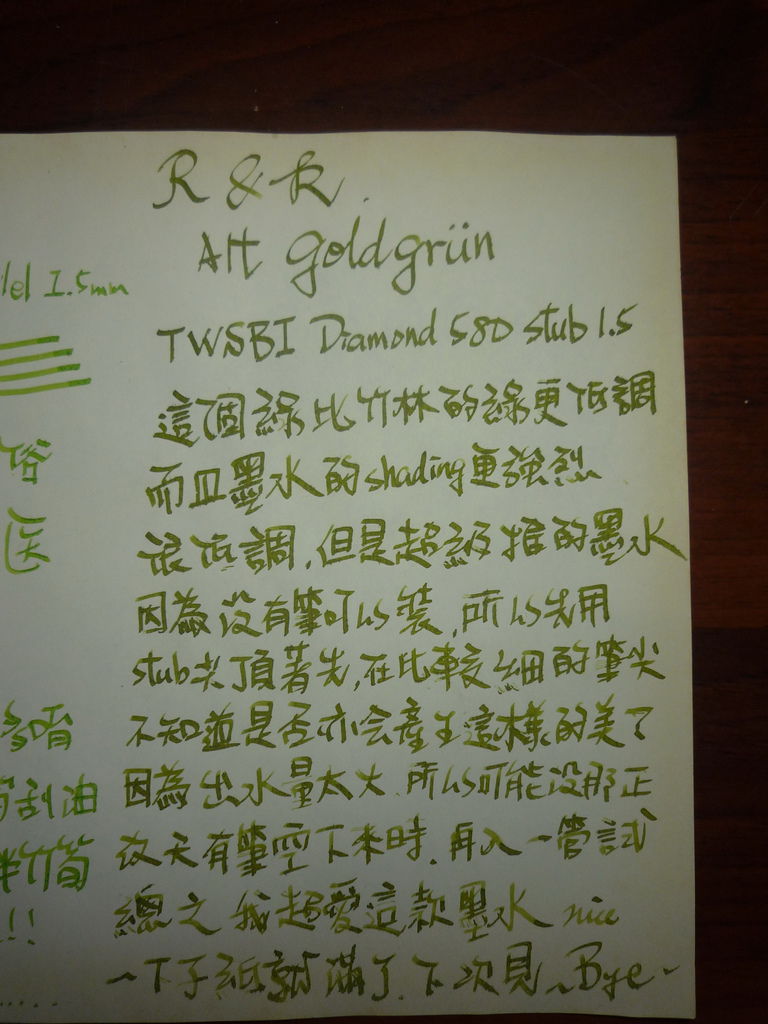 R & K.
Alt Goldgrün
llel 1.5mm
TWSBI Diamond 580 stub 1.5
這個綠比竹林的綠更低調
而且墨水的shading更強烈
俗
很低調,但是超級推的墨水
医
因為沒有筆可以裝,所以先用
stub尖頂著先,在比較細的筆尖
不知道是否亦会產生這樣的美了
唷
因為出水量太大,所以可能沒那正
刮油
改天有筆空下來時,再入一管試
竹筍
總之我超愛這款墨水 nice
!!
~下子紙就滿了,下次見~Bye~
.....